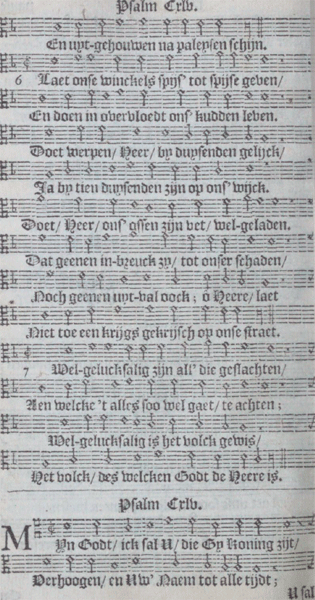 Psalm Cxlv.
En uyt-gehouwen na paleysen schijn.
6 Laet onse winckels spijs' tot spijse geven/
En doen in overvloedt ons' kudden leven.
Doet werpen/ Heer/ by duysenden gelijck/
Ja by tien duysenden zijn op ons' wijck.
Doet/ Heer/ ons' ossen zijn vet/ wel-geladen.
Dat geenen in-breuck zy/ tot onser schaden/
Noch geenen uyt-val oock; ô Heere/ laet
Niet toe een krijgs gekrijsch op onse straet.
7 Wel-gelucksalig zijn all' die geslachten/
Aen welcke 't alles soo wel gaet/ te achten;
Wel-gelucksalig is het volck gewis/
Het volck/ des welcken Godt de Heere is.
Psalm Cxlv.
MYn Godt/ ick sal U/ die Gy Koning zijt/
Verhoogen/ en Uw' Naem tot alle tijdt;
U sal